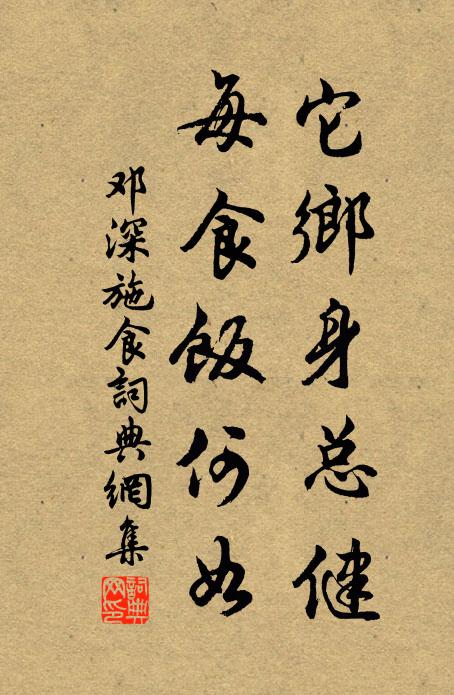 它鄉身总健
每食飯何如
邓深施食詞典網集
詞典網印